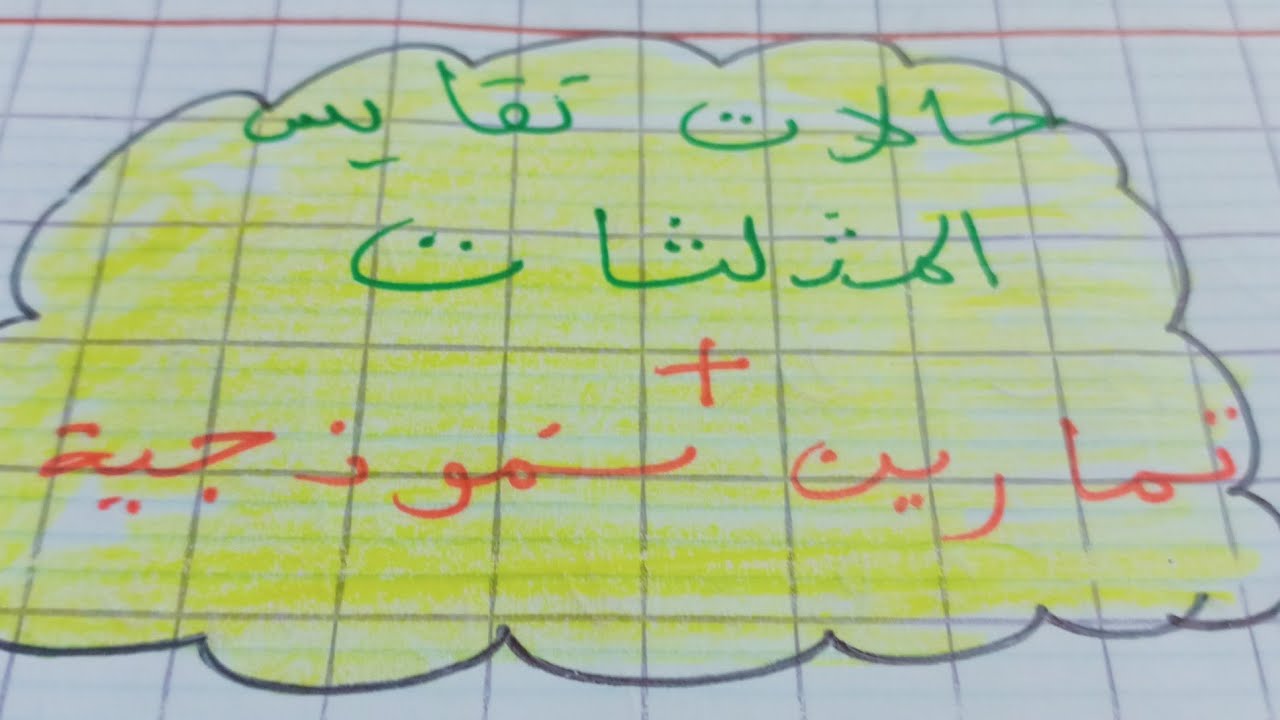 حالات تقايس
المثلثات
+
تمارين نموذجية